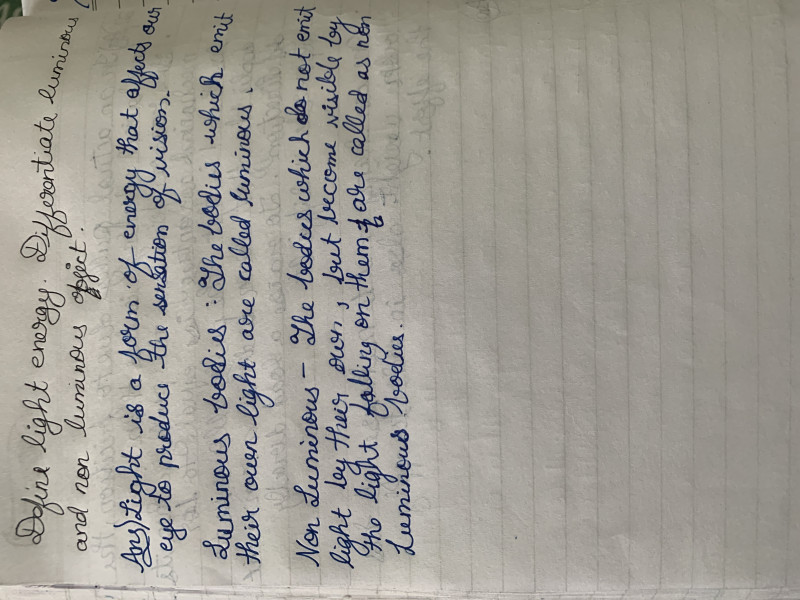 Define light energy. Differantiate luminous
and non luminous object.
Ans) Light is a form of energy that affects our
eye to produce the sensation of vision.
Luminous bodies : The bodies which emit
their own light are called luminous.
Non Luminous – The bodies which do not emit
light by their own, but become visible by
the light falling on them & are called as non
Luminous bodies.